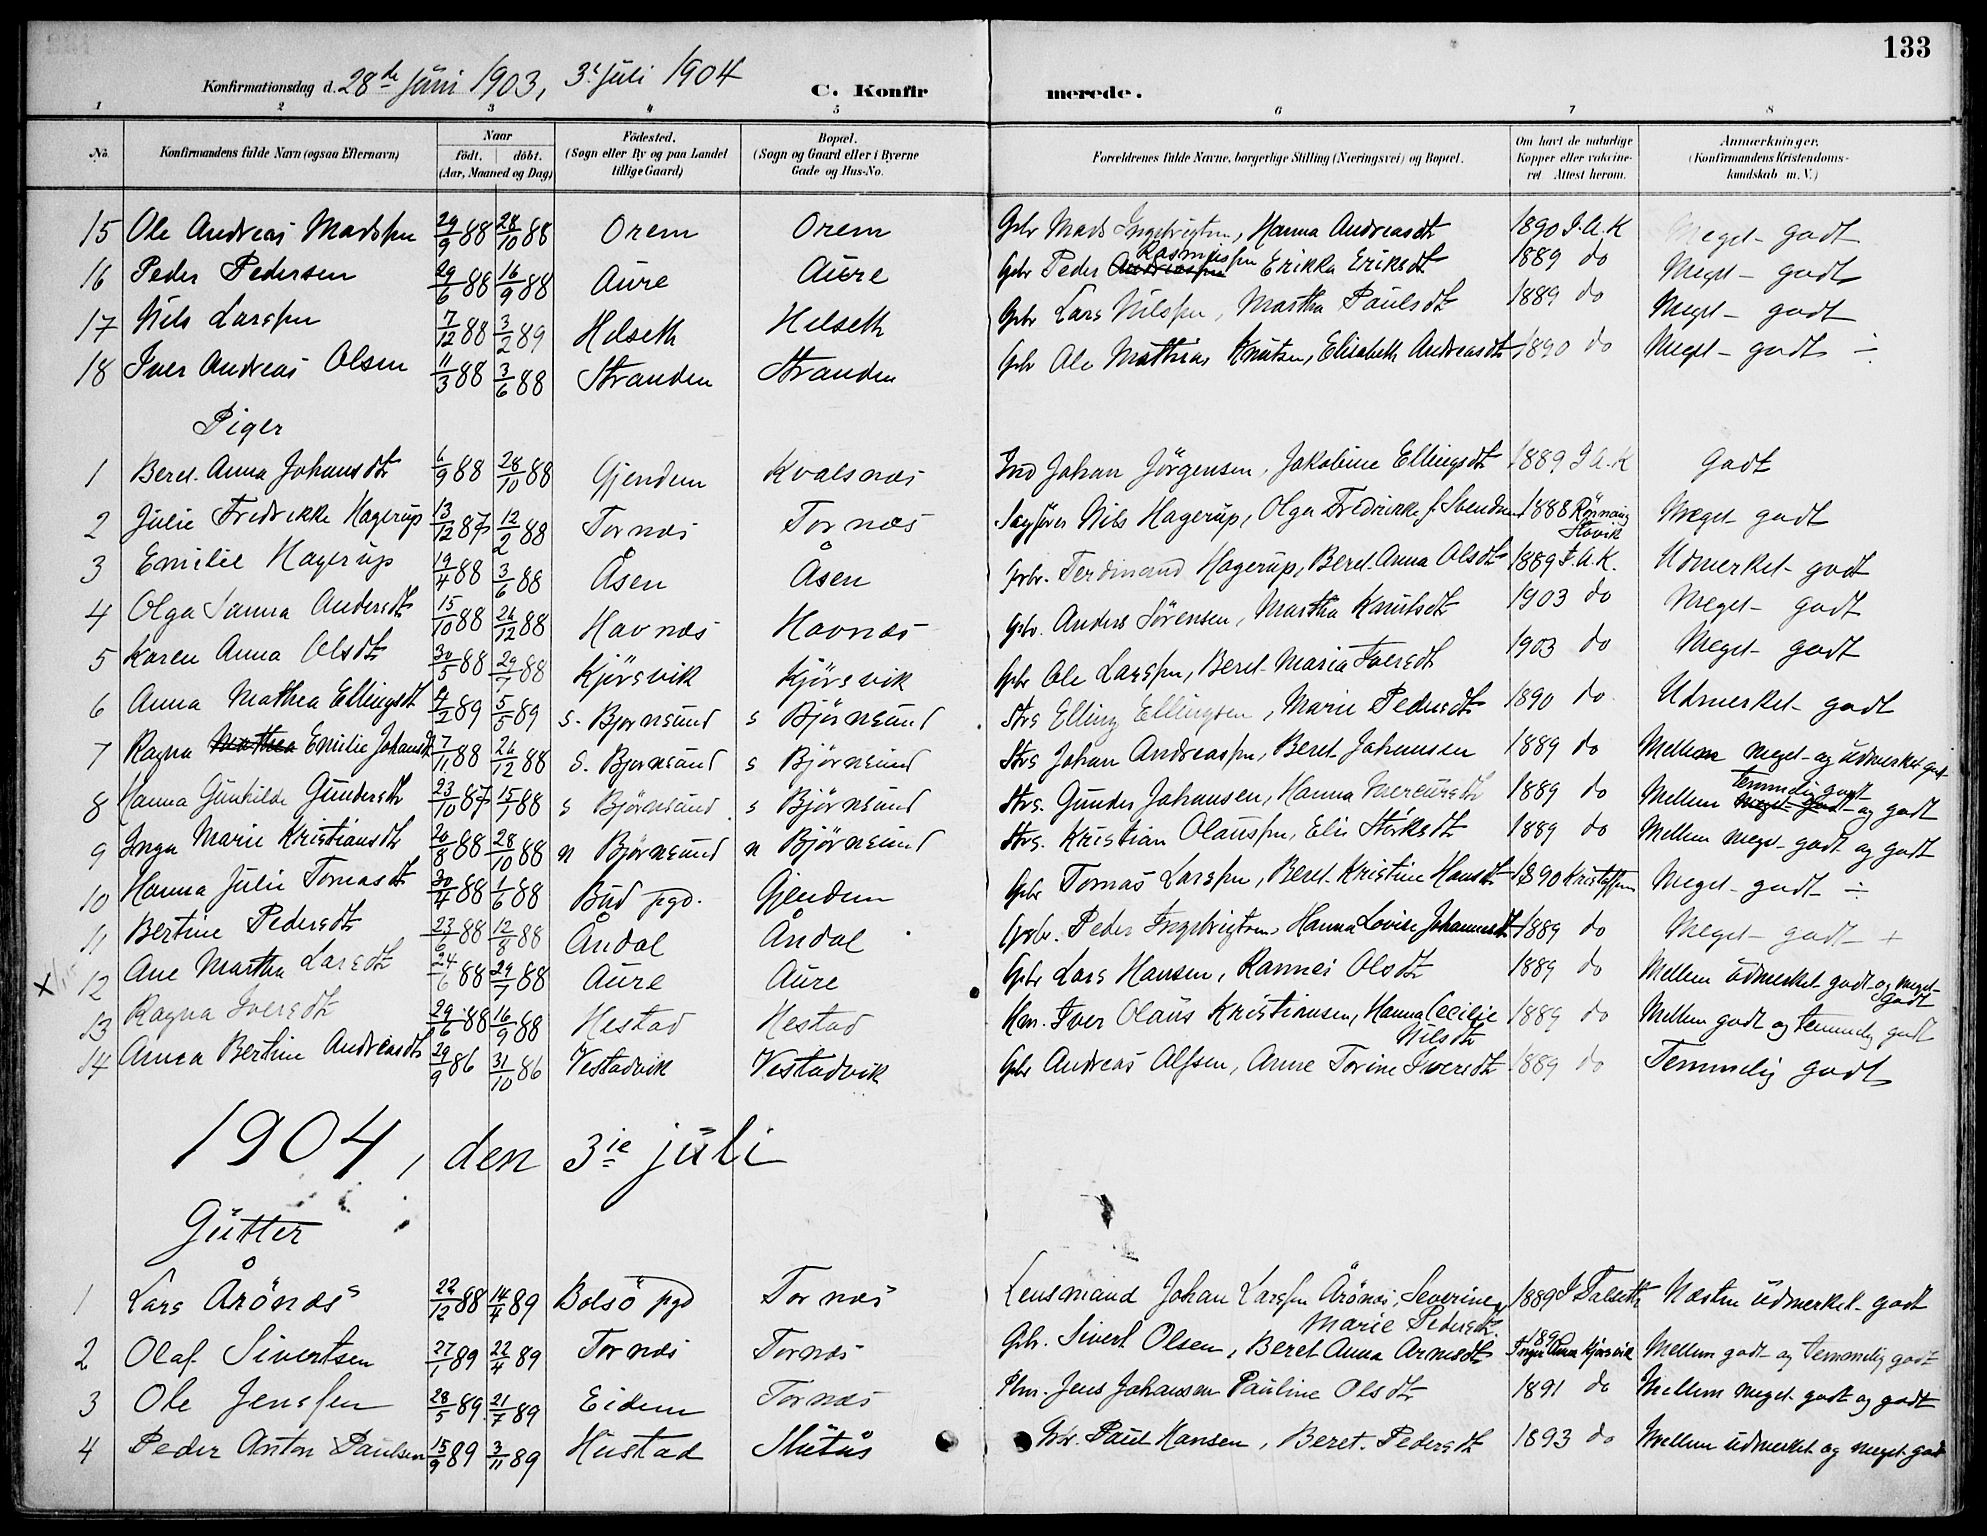 133
Konfirmationsdag d. 28de juni 1903, 3. juli 1904
C. Konfirmerede.
1 2 3 4 5 6 7 8
No. Konfirmandens fulde Navn (ogsaa Efternavn) Naar födt. döbt. (Aar, Maaned og Dag) Födested. (Sogn eller By og paa Landet tillige Gaard) Bopæl. (Sogn og Gaard eller i Byerne Gade og Hus-No. Forældrenes fulde Navne, borgerlige Stilling (Næringsvei) og Bopæl. Om havt de naturlige Kopper eller vaccineret Attest herom. Anmærkninger. (Konfirmandens Kristendomskundskab m. V.)
15 Ole Andreas Madssen 29/9 88 28/10 88 Orem Orem Gbr Mads Ingebrigtsen, Hanna Andreasdtr 1890 I.A.K Meget godt
16 Peder Pedersen 29/6 88 16/9 88 Aure Aure Gbr Peder Rasmussen Erikka Eriksdtr 1889 do Meget godt
17 Nils Larssen 7/12 88 3/2 89 Helseth Helseth Gbr Lars Nilssen, Martha Paulsdtr 1889 do Meget godt
18 Iver Andreas Olsen 11/3 88 3/6 88 Stranden Stranden Gbr Ole Mathias Knutsen, Elisabeth Andreasdtr 1890 do Meget godt ÷
Piger
1 Beret Anna Johansdtr 6/9 88 28/10 88 Gjendem Kvalsnæs Ind Johan Jörgensen, Jakobine Ellingsdtr 1889 I.A.K Godt
2 Julie Fredrikke Hagerup 13/12 87 12/2 88 Tornæs Tornæs Sagförer Nils Hagerup, Olga Fredrikke f. 1888 Rönnaug Hovik Meget godt
3 Emilie Hagerup 19/4 88 3/6 88 Åsen Åsen Gbr. Ferdinand Hagerup, Beret Anna Olsdtr 1889 I.A.K. Udmerket godt
4 Olga Sanna Andersdtr 15/10 88 26/12 88 Havnæs Havnæs Gbr. Anders Sörensen, Martha Knutsdtr 1903 do Meget godt
5 Karen Anna Olsdtr 30/5 88 29/7 88 Kjörsvik Kjörsvik Gbr Ole Larssen, Beret Maria Iversdtr 1903 do Meget godt
6 Anna Mathea Ellingsdt 4/2 89 5/5 89 s. Björnsund s Björnsund Strs Elling Ellingsen, Marie Pedersdtr 1890 do Udmerket godt
7 Ragna Mathea Emilie Johansdt 7/11 88 26/12 88 S. Björnsund s Björnsund Strs Johan Andreassen, Beret Johansen 1889 do Mellem meget og udmerket godt
8 Hanna Gunhilde Gundersdtr 23/10 87 15/1 88 s Björnsund s Björnsund Strs. Gunder Johansen, Hanna Mercursdtr 1889 do Mellem temmelig godt og godt
9 Inga Marie Kristiansdtr 20/8 88 28/10 88 n Björnsund n Björnsund Strs. Kristian Olaussen, Elis Störksdtr 1889 do Mellem meget godt og godt
10 Hanna Julie Tomasdtr 30/4 88 1/6 88 Bud pgd. Gjendem Gbr Tomas Larssen, Beret Kristine Hansdt 1890 Kristoffersen Meget godt ÷
11 Bertine Pedersdtr 23/6 88 12/8 88 Åndal Åndal Gbr. Peder Ingebrigtsen, Hanna Lovise Johannesdtr 1889 do Meget godt +
x 12 Ane Martha Larsdtr 24/6 88 29/7 88 Aure Aure Gbr Lars Hansen, Rannei Olsdtr 1889 do Mellem udmerket godt og meget godt
13 Ragna Iversdtr 29/6 88 16/9 88 Hestad Hestad Km. Iver Olaus Kristiansen, Hanna Cecilie Nilsdtr 1889 do Mellem godt og temmelig godt
14 Anna Bertine Andreasdtr 29/9 86 31/10 86 Vestadvik Vestadvik Gbr Andreas Alfsen, Anne Torine Iversdtr 1889 do Temmelig godt
1904, den 3ie juli
Gutter
1 Lars Årönæs 22/12 88 14/4 89 Bolsö pgd Tornæs Lensmand Johan Larssen Årönæs, Severine Marie Pedersdtr. 1889 I Talseth Næsten udmerket godt
2 Olaf Sivertsen 27/1 89 22/4 89 Tornæs Tornæs Gbr. Sivert Olsen, Beret Anna Arnesdtr 1890 Anna Kjörsvik Mellem godt og temmelig godt
3 Ole Jenssen 28/5 89 21/7 89 Eidem Tornæs Plm. Jens Johansen Pauline Olsdtr 1891 do Mellem meget godt og godt
4 Peder Anton Paulsen 15/9 89 3/11 89 Hustad Stutås Gbr. Paul Hansen, Beret Pedersdt 1893 do Mellem udmerket og meget godt